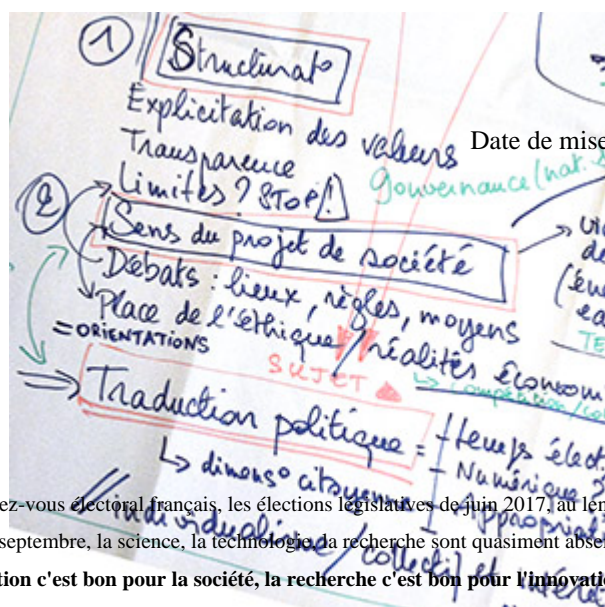 1 Structurat°
Explicitation des valeurs
Date de mise
Transparence
Limites ? STOP!
Gouvernance (nat.
2 Sens du projet de société
Débats : lieux, règles, moyens
Place de l'éthique / réalités économ
= ORIENTATIONS
SUJET
compétition
⇒ Traduction politique = - temps élect
↳ dimens° citoyenne
- Numérique ?
- Appropriat
individualisme / collectif et intérêt
ez-vous électoral français, les élections législatives de juin 2017, au len
septembre, la science, la technologie, la recherche sont quasiment abse
tion c'est bon pour la société, la recherche c'est bon pour l'innovatio